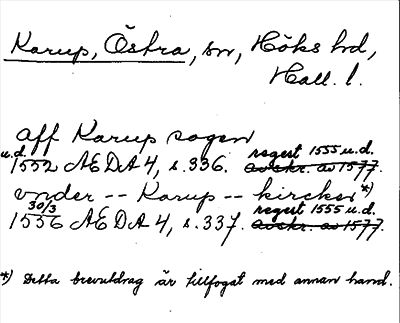 Karup, Östra, sn, Höks hd,
Hall. l.
aff Karup sogen
u.d. regest 1555 u.d.
1552 ÆDA 4, s. 336. avskr. av 1577.
vnder -- Karup -- kircker *)
30/3 regest 1555 u.d.
1556 ÆDA 4, s. 337. avskr. av 1577.
*) Detta brevutdrag är tillfogat med annan hand.